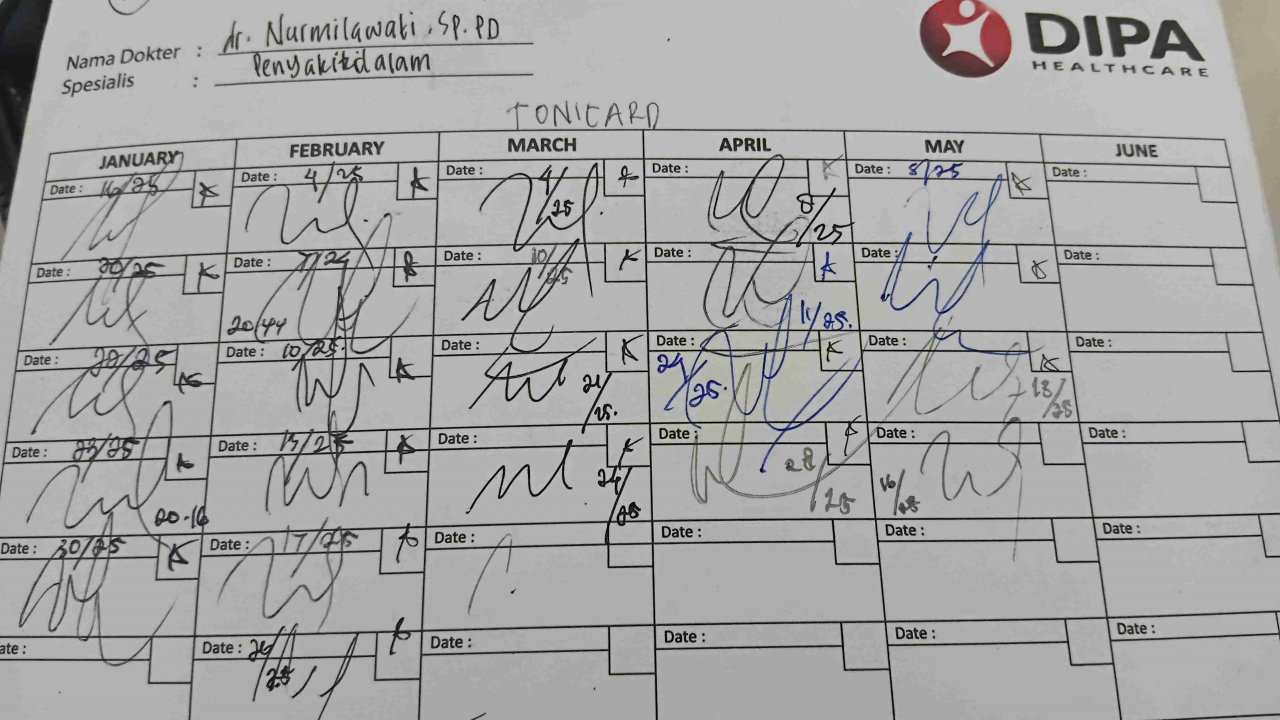 Nama Dokter : dr. Nurmilawati, SP.PD
Spesialis : Penyakit dalam
DIPA
HEALTHCARE
TONICARD
JANUARY FEBRUARY MARCH APRIL MAY JUNE
Date : 16/25 Date : 4/25 Date : 4/25 Date : 8/25 Date : 8/25 Date :
Date : 20/25 Date : 7/24 Date : 10/25 Date : 11/25. Date : Date :
20/44
Date : 22/25 Date : 10/25. Date : 21/25. Date : 24/25. Date : 13/25 Date :
Date : 23/25 Date : 13/25 Date : 24/25 Date : 28/25 Date : 16/25 Date :
20.16
Date : 30/25 Date : 17/25 Date : Date : Date : Date :
ate : Date : 26/25 Date : Date : Date : Date :